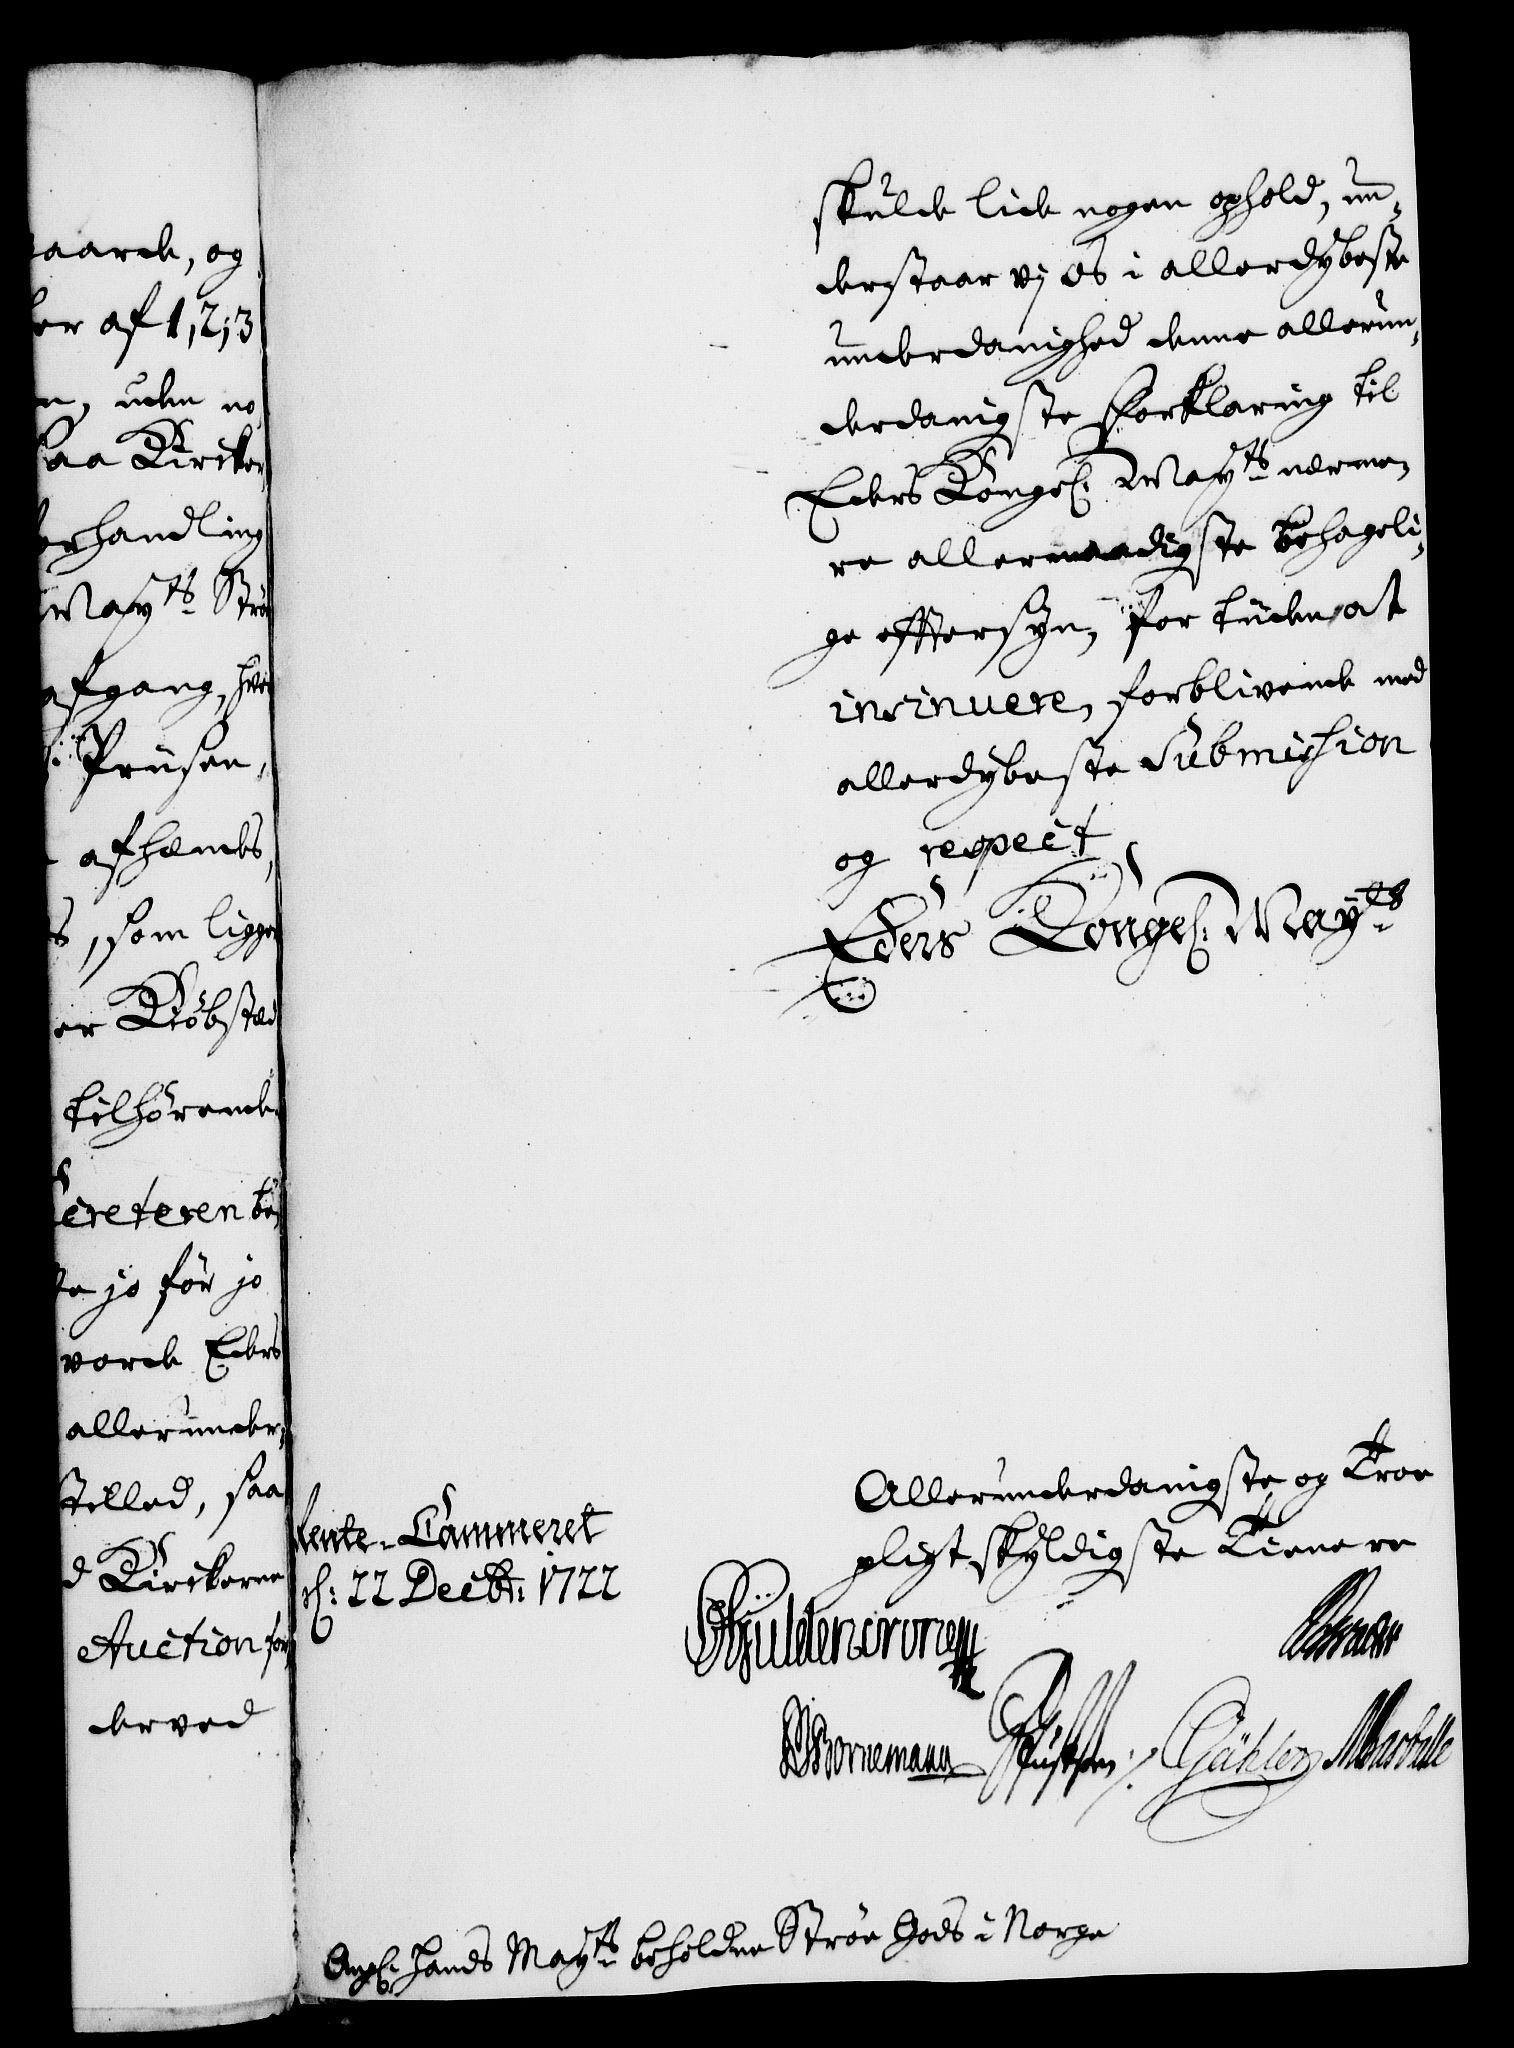 aarde, og
er af 1, 2, 3
n, uden no
saa Kircker
rhandling
Maÿts Strøe
afgang, hver
i Prüsen,
afhændes,
s, som ligger
er Kiöbstæd
tilhörende
creteren be
te jo för jo
vorde Eders
allerunder-
stilled, saa
d Kirckerne
Auction for
derved
skulde lide nogen ophold, un-
derstaar vj os i allerdybeste
underdanighed denne allerun-
derdanigste Forklaring til
Eders Kongel: Maÿts nærme-
re allernaadigste behageli-
ge efftersyn, for tiiden at
insinuere, forblivende med
allerdybeste Submission
og respect
Eders Kongel: Maÿts
Allerunderdanigste og Troe
pligt skyldigste Tienere
Rente-Cammeret
d: 22 Decbr: 1722
Güldencrone
Bornemann Gähler
Angl: Hands Mayts beholdne Strøe Gods i Norge